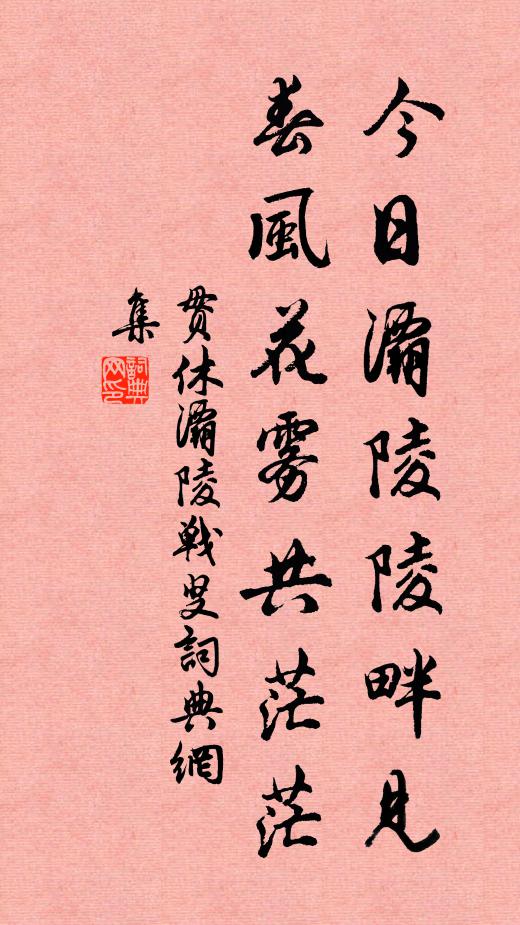 今日灞陵陵畔見
春風花雾共茫茫
貫休灞陵戦叟詞典網
集
詞典
网印